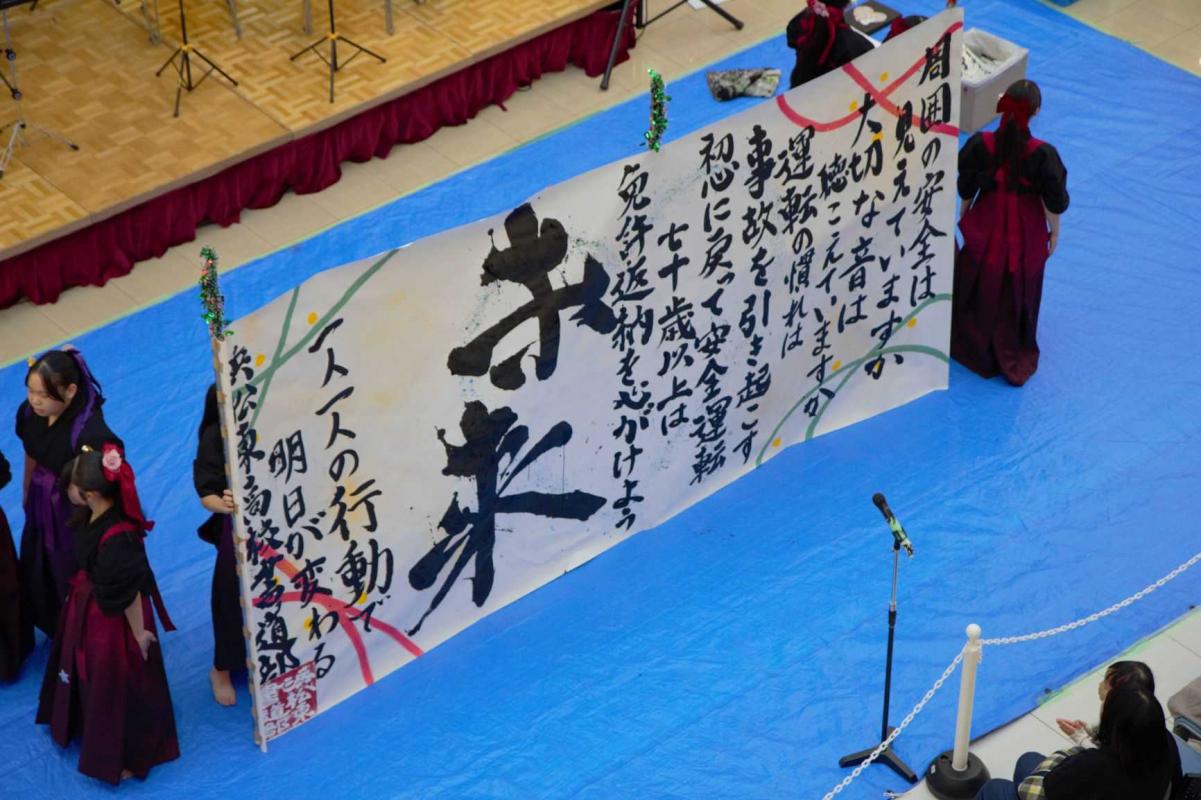 周囲の安全は
見えていますか
大切な音は
聴こえていますか
運転の慣れは
事故を引き起こす
初心に戻って安全運転
七十歳以上は
免許返納を心がけよう
未来
一人一人の行動で
明日が変わる
浜松東高校書道部
浜松東
書道部